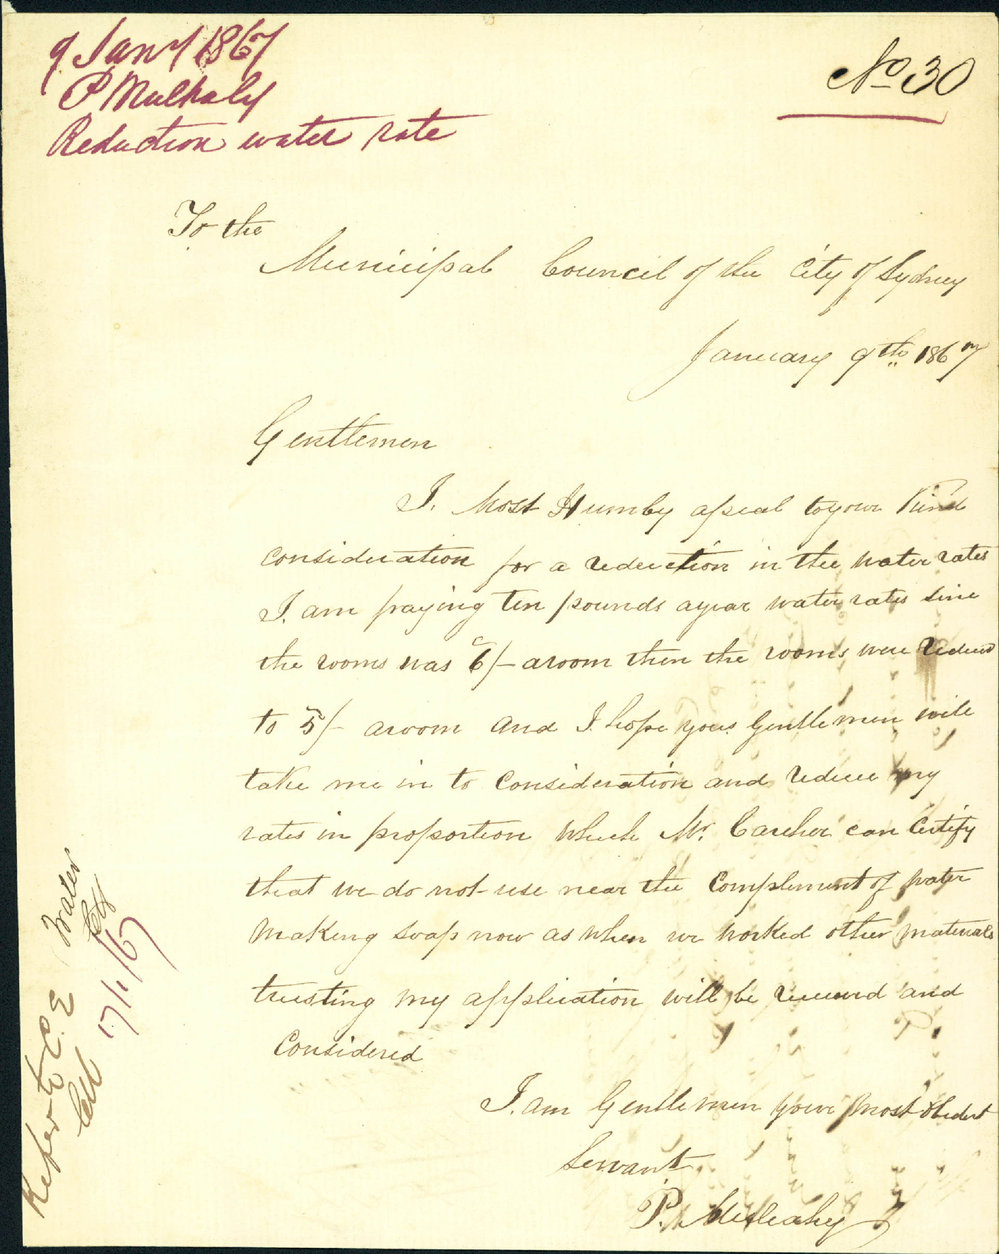 9 Jany 1867
P Mulhaly
Reduction water rate
No 30
To the
Municipal Council of the City of Sydney
January 9th 1867
Gentlemen
I. Most Humby apeal to your Kind
consideration for a reduction in the water rates
I. am paying ten pounds a year water rates since
the rooms was 6/- a room then the rooms were reduced
to 5/- a room and I hope you Gentlemen will
take me in to Consideration and reduce my
rates in proportion which Mr. can Certify
that we do not use near the Complement of water
Making soap now as when we worked other materials
trusting my application will be received and
Considered
I. am Gentlemen your most obedient
Servant
P. Mullahy
Refer to C. E Water
17/1/67